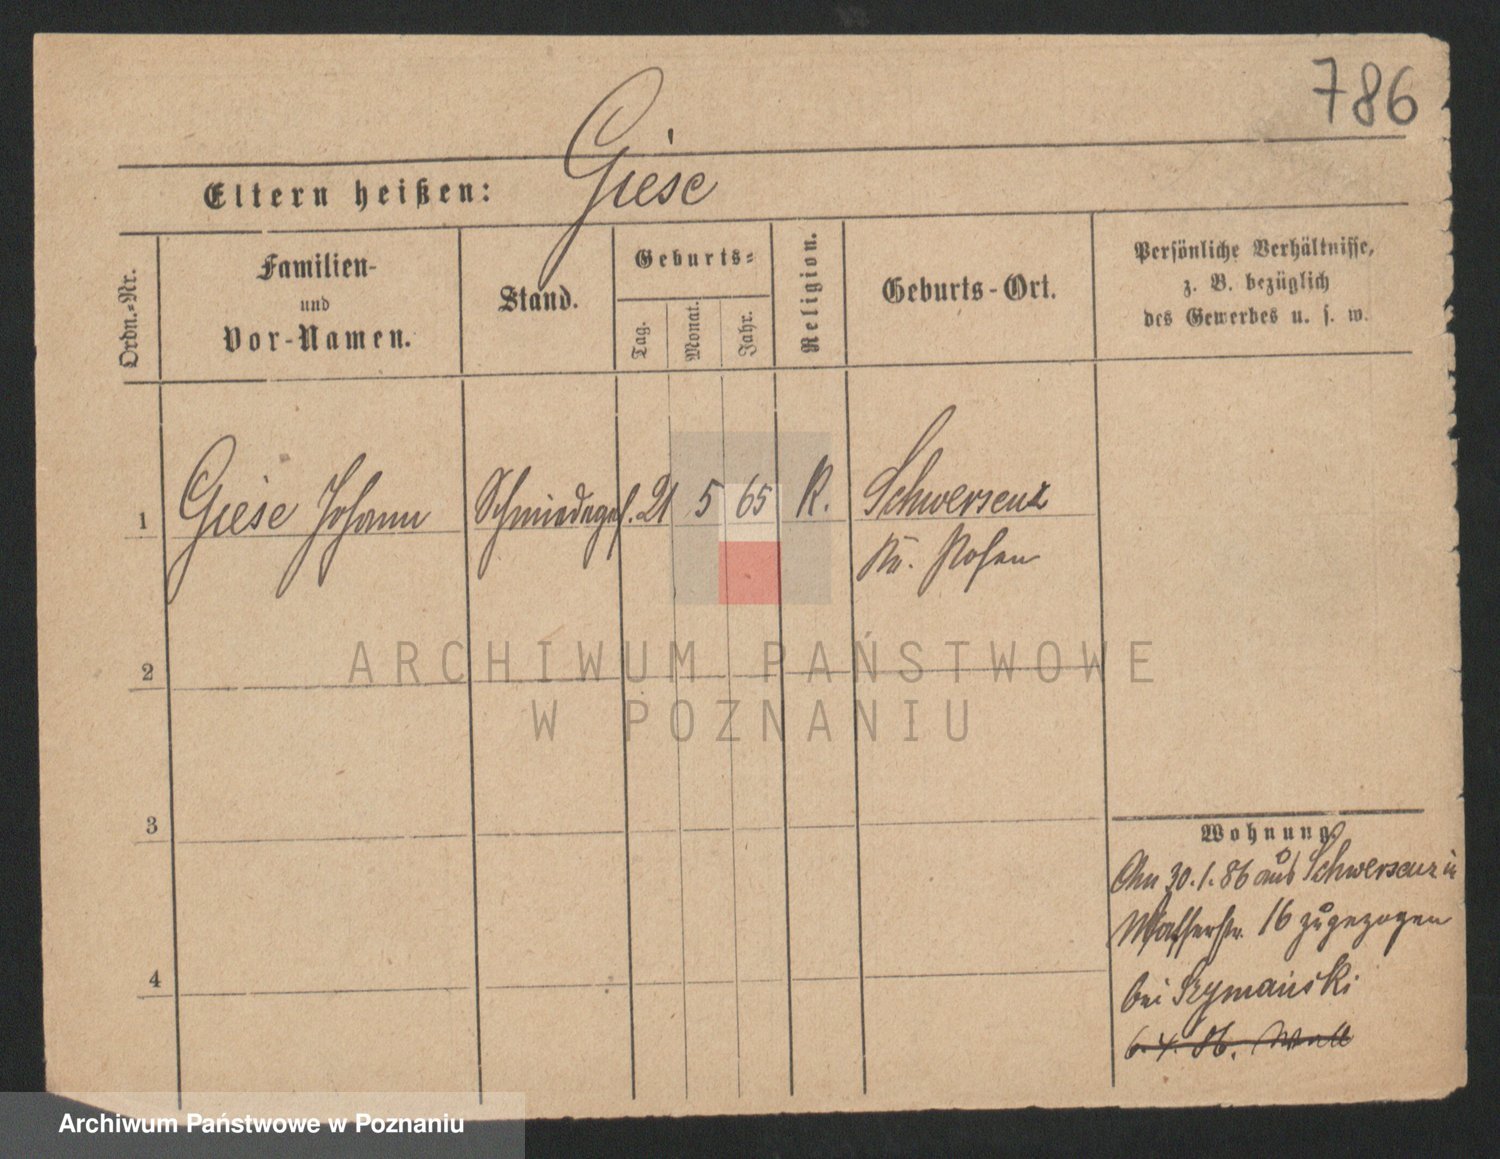 786
Giese
Eltern heißen:
Ordn.-Nr.
Familien-
und
Vor-Namen.
Stand.
Geburts-
Tag.
Monat.
Jahr.
Religion.
Geburts-Ort.
Persönliche Verhältnisse,
z. B. bezüglich
des Gewerbes u. s. w.
1 Giese Johann Schmiedeges. 21 5 65 K. Schwersenz
Kr. Posen
2
3
4
Wohnung.
Am 30.1.86 aus Schwersenz in
Wasserstr. 16 zugezogen
bei Szymański
6.4.86.
ARCHIWUM PAŃSTWOWE
W POZNANIU
Archiwum Państwowe w Poznaniu